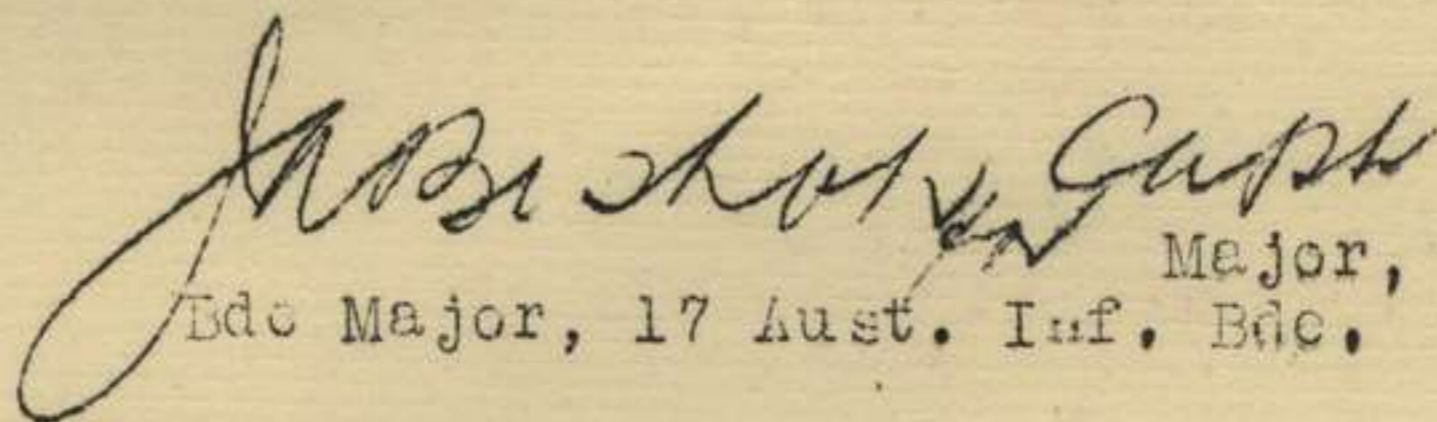 Capt
Major,
Bde Major, 17 Aust. Inf. Bde.